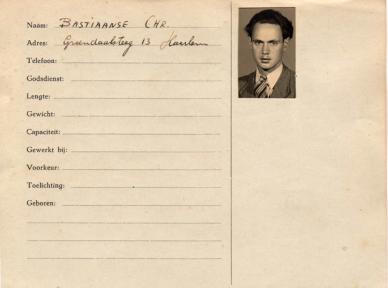 Naam: BASTIAANSE CHR.
Adres: Groendaalsteeg 13 Haarlem
Telefoon:
Godsdienst:
Lengte:
Gewicht:
Capaciteit:
Gewerkt bij:
Voorkeur:
Toelichting:
Geboren: